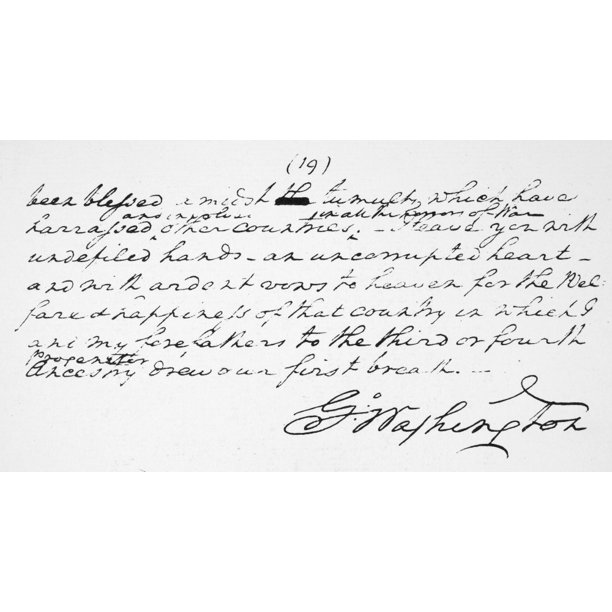 (19)
been blessed amidst the tumults which have
and involved in all the horrors of War
harrassed other countries. – I leave you with
undefiled hands – an uncorrupted heart –
and with ardent vows to heaven for the Wel-
fare & happiness of that country in which I
and my forefathers to the third or fourth
progenitor
Ancestry drew our first breath. –
G:Washington